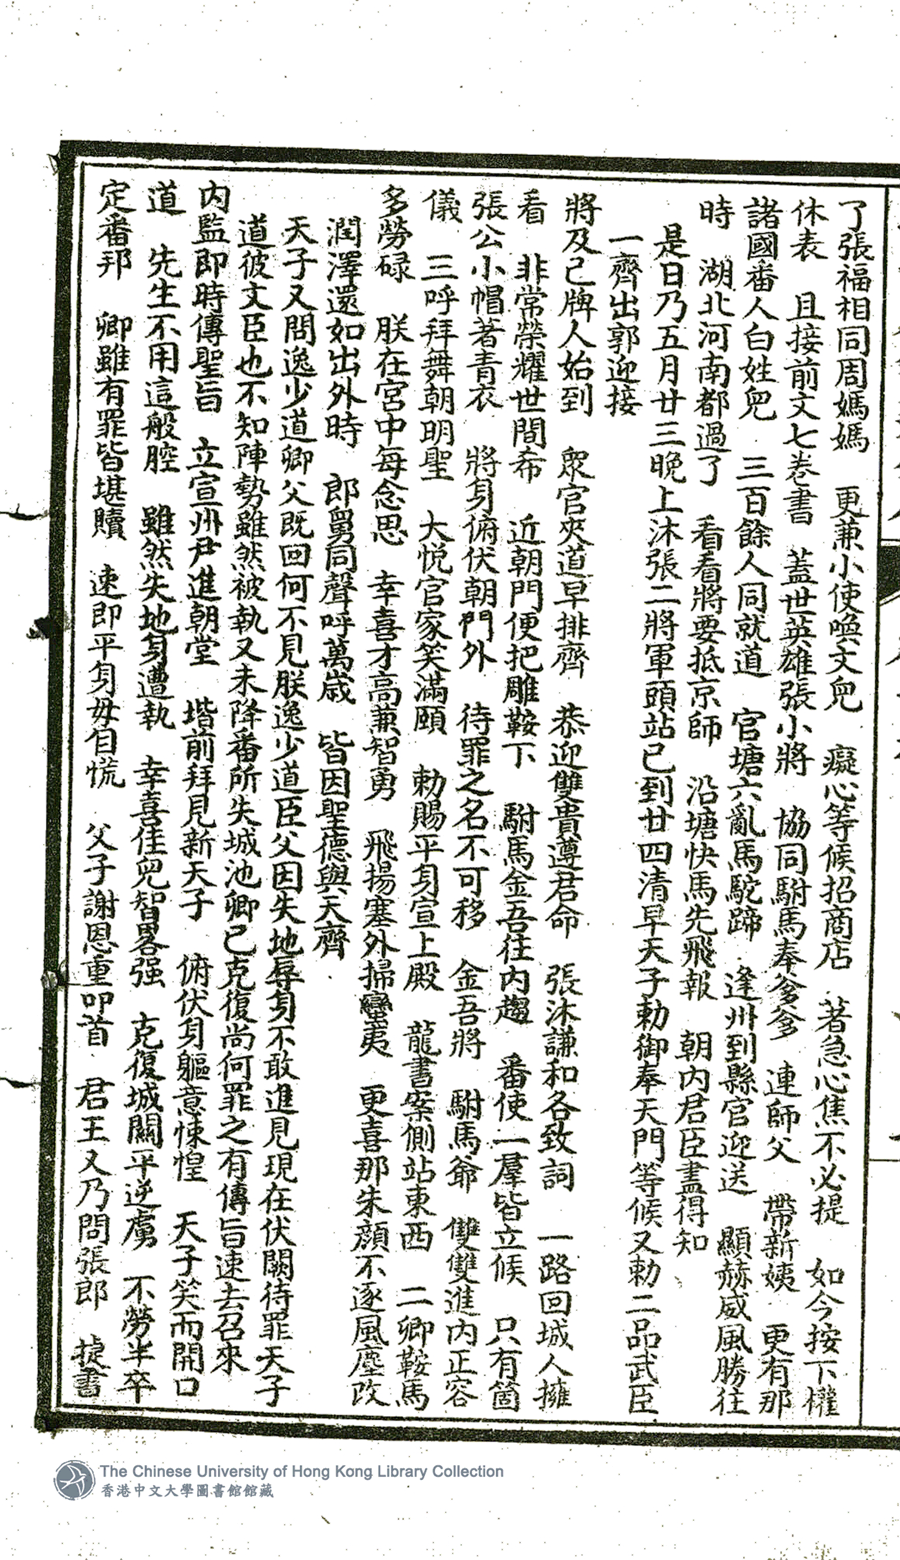 了張福相同周媽媽　更兼小使喚文兒　癡心等候招商店　著急心焦不必提　如今按下權
休表　且接前文七卷書　蓋世英雄張小將　協同駙馬奉爹爹　連師父　帶新姨　更有那
諸國番人白姓兒　三百餘人同就道　官塘六亂馬駝蹄　逢州到縣官迎送　顯赫威風勝往
時　湖北河南都過了　看看將要抵京師　沿塘快馬先飛報　朝内君臣盡得知
是日乃五月廿三晚上沐張二將軍頭站已到廿四清早天子勅御奉天門等候又勅二品武臣
一齊出郭迎接
將及己牌人始到　衆官夾道早排齊　恭迎雙貴遵君命　張沐謙和各致詞　一路回城人擁
看　非常榮耀世間希　近朝門便把雕鞍下　駙馬金吾往内趨　番使一羣皆立候　只有箇
張公小帽著青衣　將身俯伏朝門外　待罪之名不可移　金吾將　駙馬爺　雙雙進内正容
儀　三呼拜舞朝明聖　大悦官家笑滿頤　勅賜平身宣上殿　龍書案側站東西　二卿鞍馬
多勞碌　朕在宮中每念思　幸喜才高兼智勇　飛揚塞外掃蠻夷　更喜那朱顔不逐風塵改
潤澤還如出外時　郎舅同聲呼萬歲　皆因聖德與天齊
天子又問逸少道卿父既回何不見朕逸少道臣父因失地辱身不敢進見現在伏闕待罪天子
道彼文臣也不知陣勢雖然被執又未降番所失城池卿已克復尚何罪之有傳旨速去召來
内監即時傳聖旨　立宣州尹進朝堂　堦前拜見新天子　俯伏身軀意悚惶　天子笑而開口
道　先生不用這般腔　雖然失地身遭執　幸喜佳兒智畧强　克復城關平逆虜　不勞半卒
定番邦　卿雖有罪皆堪贖　速即平身毋自慌　父子謝恩重叩首　君王又乃問張郎　捷書
The Chinese University of Hong Kong Library Collection
香港中文大學圖書館館藏